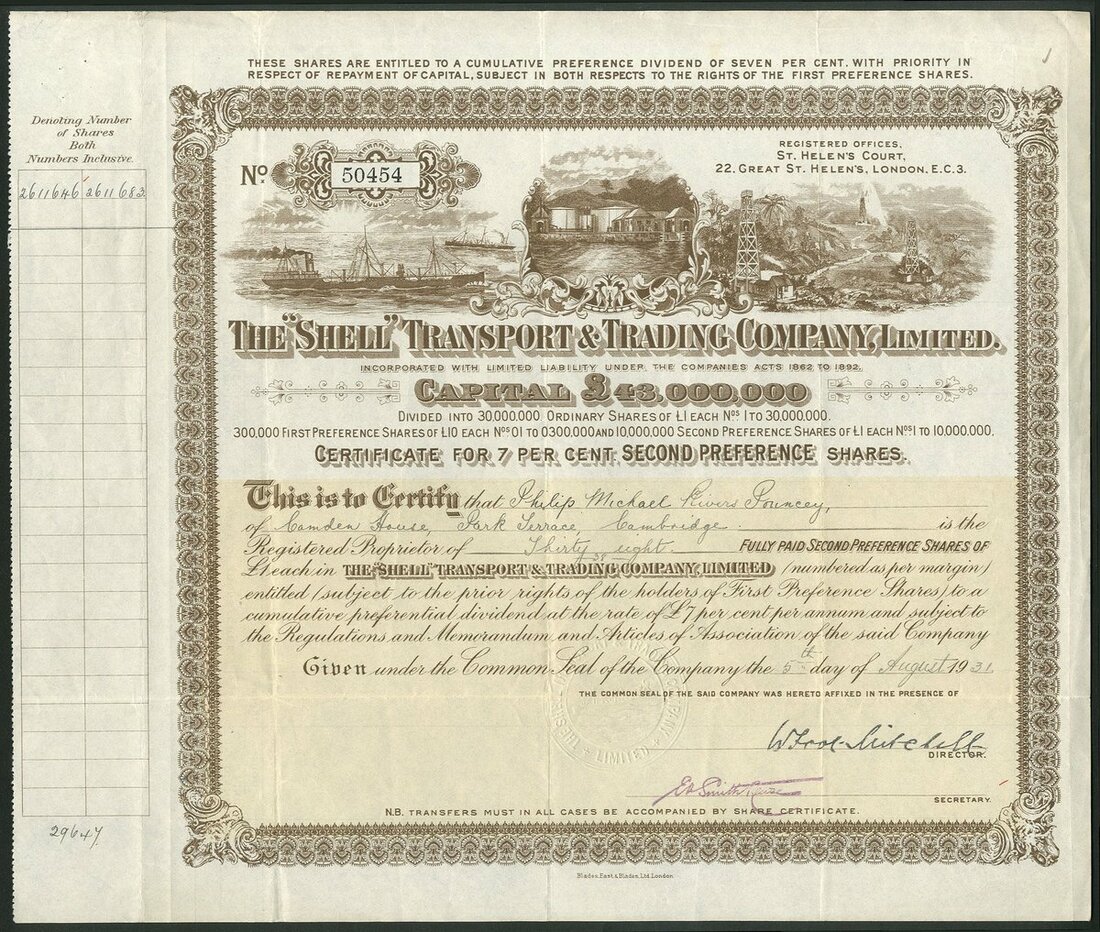 THESE SHARES ARE ENTITLED TO A CUMULATIVE PREFERENCE DIVIDEND OF SEVEN PER CENT. WITH PRIORITY IN
RESPECT OF REPAYMENT OF CAPITAL, SUBJECT IN BOTH RESPECTS TO THE RIGHTS OF THE FIRST PREFERENCE SHARES.
Denoting Number
of Shares
Both
Numbers Inclusive.
2611646 2611683
No. 50454
REGISTERED OFFICES,
ST. HELEN'S COURT,
22. GREAT ST. HELEN'S, LONDON. E.C.3.
THE "SHELL" TRANSPORT & TRADING COMPANY, LIMITED.
INCORPORATED WITH LIMITED LIABILITY UNDER THE COMPANIES ACTS 1862 TO 1892.
CAPITAL £43,000,000
DIVIDED INTO 30,000,000 ORDINARY SHARES OF £1 EACH Nos 1 TO 30,000,000.
300,000 FIRST PREFERENCE SHARES OF £10 EACH Nos 01 TO 0300,000 AND 10,000,000 SECOND PREFERENCE SHARES OF £1 EACH Nos 1 TO 10,000,000.
CERTIFICATE FOR 7 PER CENT. SECOND PREFERENCE SHARES.
This is to Certify that Philip Michael Rivers Pouncey,
of Camden House, Park Terrace, Cambridge. is the
Registered Proprietor of Thirty eight. FULLY PAID SECOND PREFERENCE SHARES OF
38
£1 each in THE "SHELL" TRANSPORT & TRADING COMPANY, LIMITED (numbered as per margin)
entitled (subject to the prior rights of the holders of First Preference Shares) to a
cumulative preferential dividend at the rate of £7 per cent per annum and subject to
the Regulations and Memorandum and Articles of Association of the said Company
Given under the Common Seal of the Company the 5th day of August 1931
THE COMMON SEAL OF THE SAID COMPANY WAS HERETO AFFIXED IN THE PRESENCE OF
LIMITED
DIRECTOR.
SECRETARY.
N.B. TRANSFERS MUST IN ALL CASES BE ACCOMPANIED BY SHARE CERTIFICATE.
29647
Blades, East & Blades, Ltd. London.